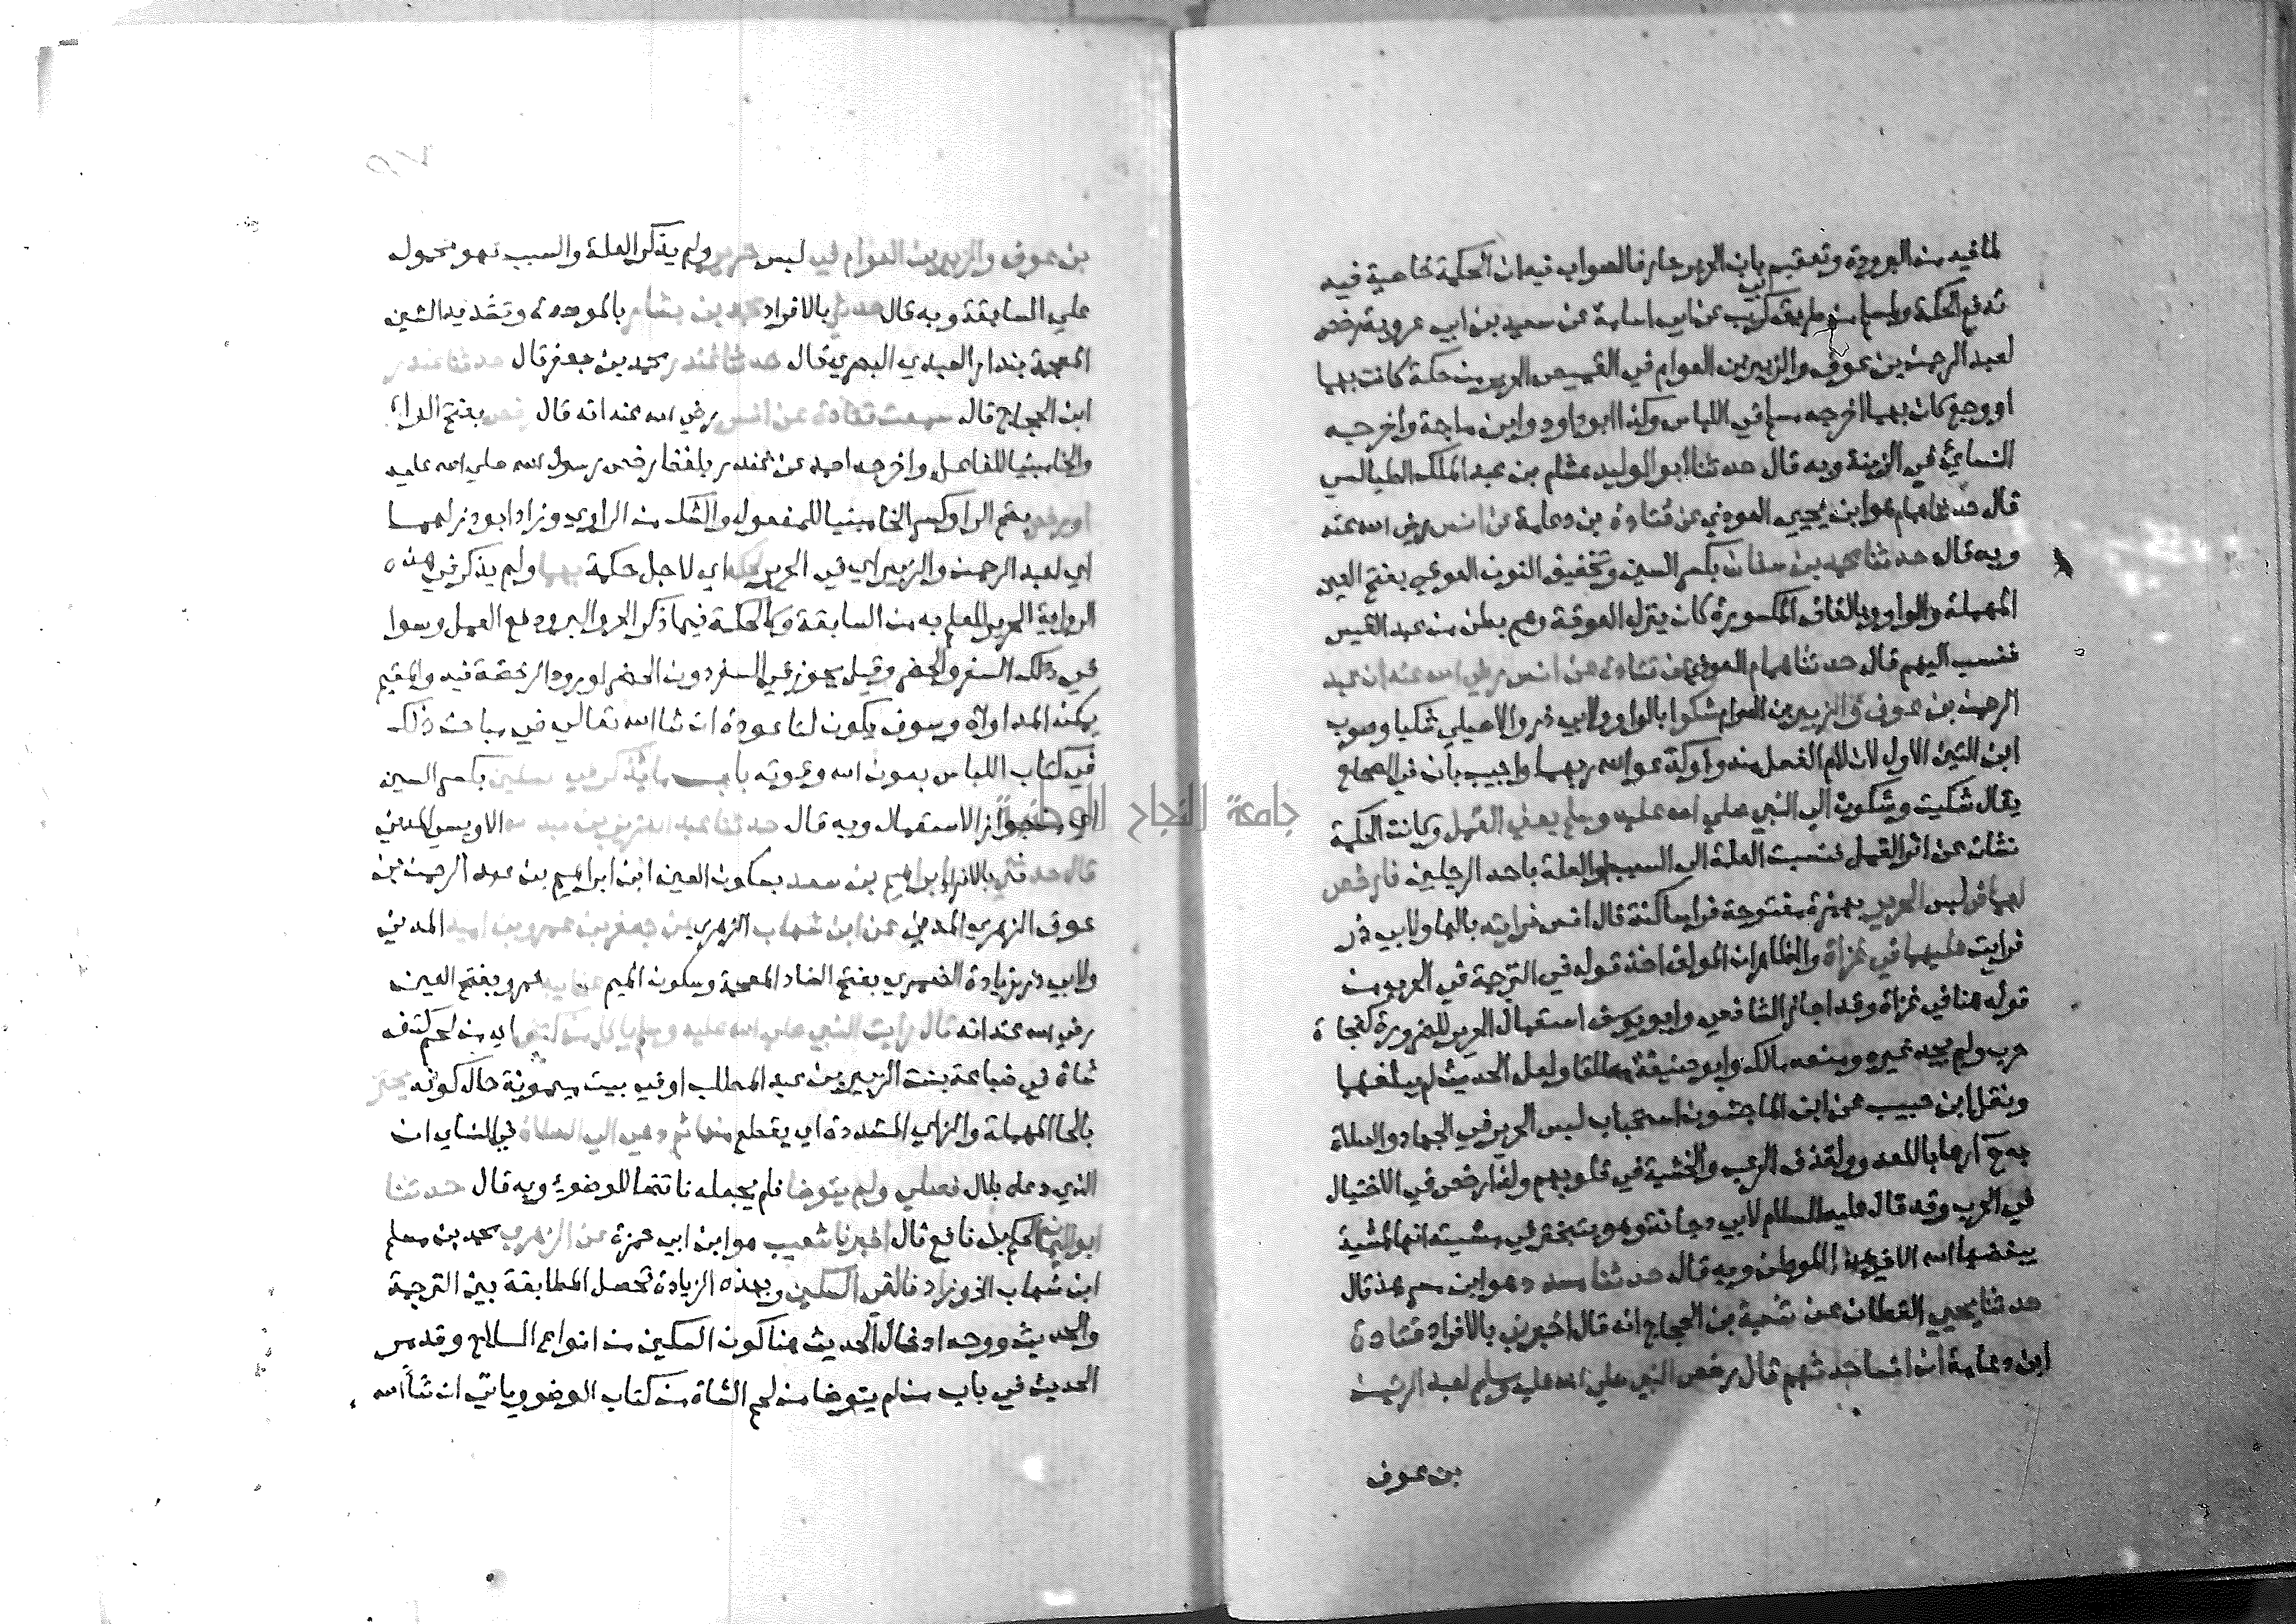 لما فيه من البرودة وتعقب بان الحرير حار فالصواب فيه ان الحكمة خاصية فيه
تدفع الحكة ولمسلم من طريق ابي كريب عن ابي اسامة عن سعيد بن ابي عروبة رخص
لعبد الرحمن بن عوف والزبير بن العوام في القميص الحرير من حكة كانت بهما
او وجع كان بهما اخرجه مسلم في اللباس وكذا ابو داود وابن ماجة واخرجه
النسائي في الزينة وبه قال حدثنا ابو الوليد هشام بن عبد الملك الطيالسي
قال حدثنا همام هو ابن يحيى العوذي عن قتادة بن دعامة عن انس رضي الله عنه
وبه قال حدثنا محمد بن سنان بكسر السين وتخفيف النون العوقي بفتح العين
المهملة والواو وبالقاف المكسورة كان ينزل العوقة وهم بطن من عبد القيس
فنسب اليهم قال حدثنا همام العوذي عن قتادة عن انس رضي الله عنه ان عبد
الرحمن بن عوف والزبير بن العوام شكوا بالواو ولابي ذر والاصيلي شكيا وصوب
ابن التين الاول لان لام الفعل منه واو كدعوا الله ربهما واجيب بان في الصحاح
يقال شكيت وشكوت الى النبي صلى الله عليه وسلم يعني القمل وكانت الحكة
نشات عن اثر القمل فنسبت العلة الى السبب او العلة باحد الرجلين فارخص
لهما في لبس الحرير بهمزة مفتوحة فراء ساكنة قال انس فرايته بالهاء ولابي ذر
فرايت عليهما في غزاة والظاهر ان المولف اخذ قوله في الترجمة في الحرب من
قوله هنا في غزاة وقد اجاز الشافعي وابو يوسف استعمال الحرير للضرورة كفجاة
حرب ولم يجد غيره ومنعه مالك وابو حنيفة مطلقا ولعل الحديث لم يبلغهما
ونقل ابن حبيب عن ابن الماجشون استحباب لبس الحرير في الجهاد والصلاة
به ح ارهابا للعدو ولقذف الرعب والخشية في قلوبهم ولذا رخص في الاختيال
في الحرب وقد قال عليه السلام لابي دجانة وهو يتبختر في مشيته انها لمشية
يبغضها الله الا في هذا الموطن وبه قال حدثنا مسدد هو ابن مسرهد قال
حدثنا يحيي القطان عن شعبة بن الحجاج انه قال اخبرني بالافراد قتادة
ابن دعامة ان انسا حدثهم قال رخص النبي صلى الله عليه وسلم لعبد الرحمن
بن عوف
بن عوف والزبير بن العوام في لبس حرير ولم يذكر العلة والسبب فهو محمول
على السابقة وبه قال حدثني بالافراد محمد بن بشار بالموحدة وتشديد الشين
المعجمة بندار العبدي البصري قال حدثنا غندر محمد بن جعفر قال حدثنا
ابن الحجاج قال سمعت قتادة عن انس رضي الله عنه انه قال رخص بفتح الراء
والخاء مبنيا للفاعل واخرجه احمد عن غندر بلفظ رخص رسول الله صلى الله عليه
او رخص بضم الرا وكسر الخا مبنيا للمفعول والشك من الراوي وزاد ابو ذر لهما
اي لعبد الرحمن والزبير اي في الحرير لحكة اي لاجل حكة بهما ولم يذكر في هذه
الرواية الحرير للعلم به من السابقة وكالحكة فيما ذكر الحر والبرد ودفع القمل وسوا
في ذلك السفر والحضر وقيل يجوز في السفر دون الحضر لورود الرخصة فيه والمقيم
يمكنه المداواة وسوف يكون لنا عودة ان شا الله تعالى في مباحث ذلك
في كتاب اللباس بعون الله وقوته باب ما يذكر في السكين بكسر السين
اي من جواز الاستعمال وبه قال حدثنا عبد العزيز بن عبد الله الاويسي المدني
قال حدثني بالافراد ابراهيم بن سعد بسكون العين ابن ابراهيم بن عبد الرحمن بن
عوف الزهري المدني عن ابن شهاب الزهري عن جعفر بن عمرو بن امية المدني
ولابي ذر زيادة الضمري بفتح الضاد المعجمة وسكون الميم عن ابيه عمرو بفتح العين
رضي الله عنه انه قال رايت النبي صلى الله عليه وسلم ياكل من كتف اي من لحم كتف
شاة في ضباعة بنت الزبير بن عبد المطلب او في بيت ميمونة حال كونه يحتز
بالحا المهملة والزاي المشددة اي يقطع منها ثم دعي الى الصلاة في النساي ان
الذي دعاه بلال فصلى ولم يتوضا فلم يجعله ناقضا للوضوء وبه قال حدثنا
ابو اليمان الحكم بن نافع قال اخبرنا شعيب هو ابن ابي حمزة عن الزهري محمد بن مسلم
ابن شهاب الخ وزاد فالقى السكين وبهذه الزيادة تحصل المطابقة بين الترجمة
والحديث ووجه ادخال الحديث هنا كون السكين من انواع السلاح وقد مر
الحديث في باب من لم يتوضا من لحم الشاة من كتاب الوضوء وياتي ان شاء الله
جامعة النجاح الوطنية